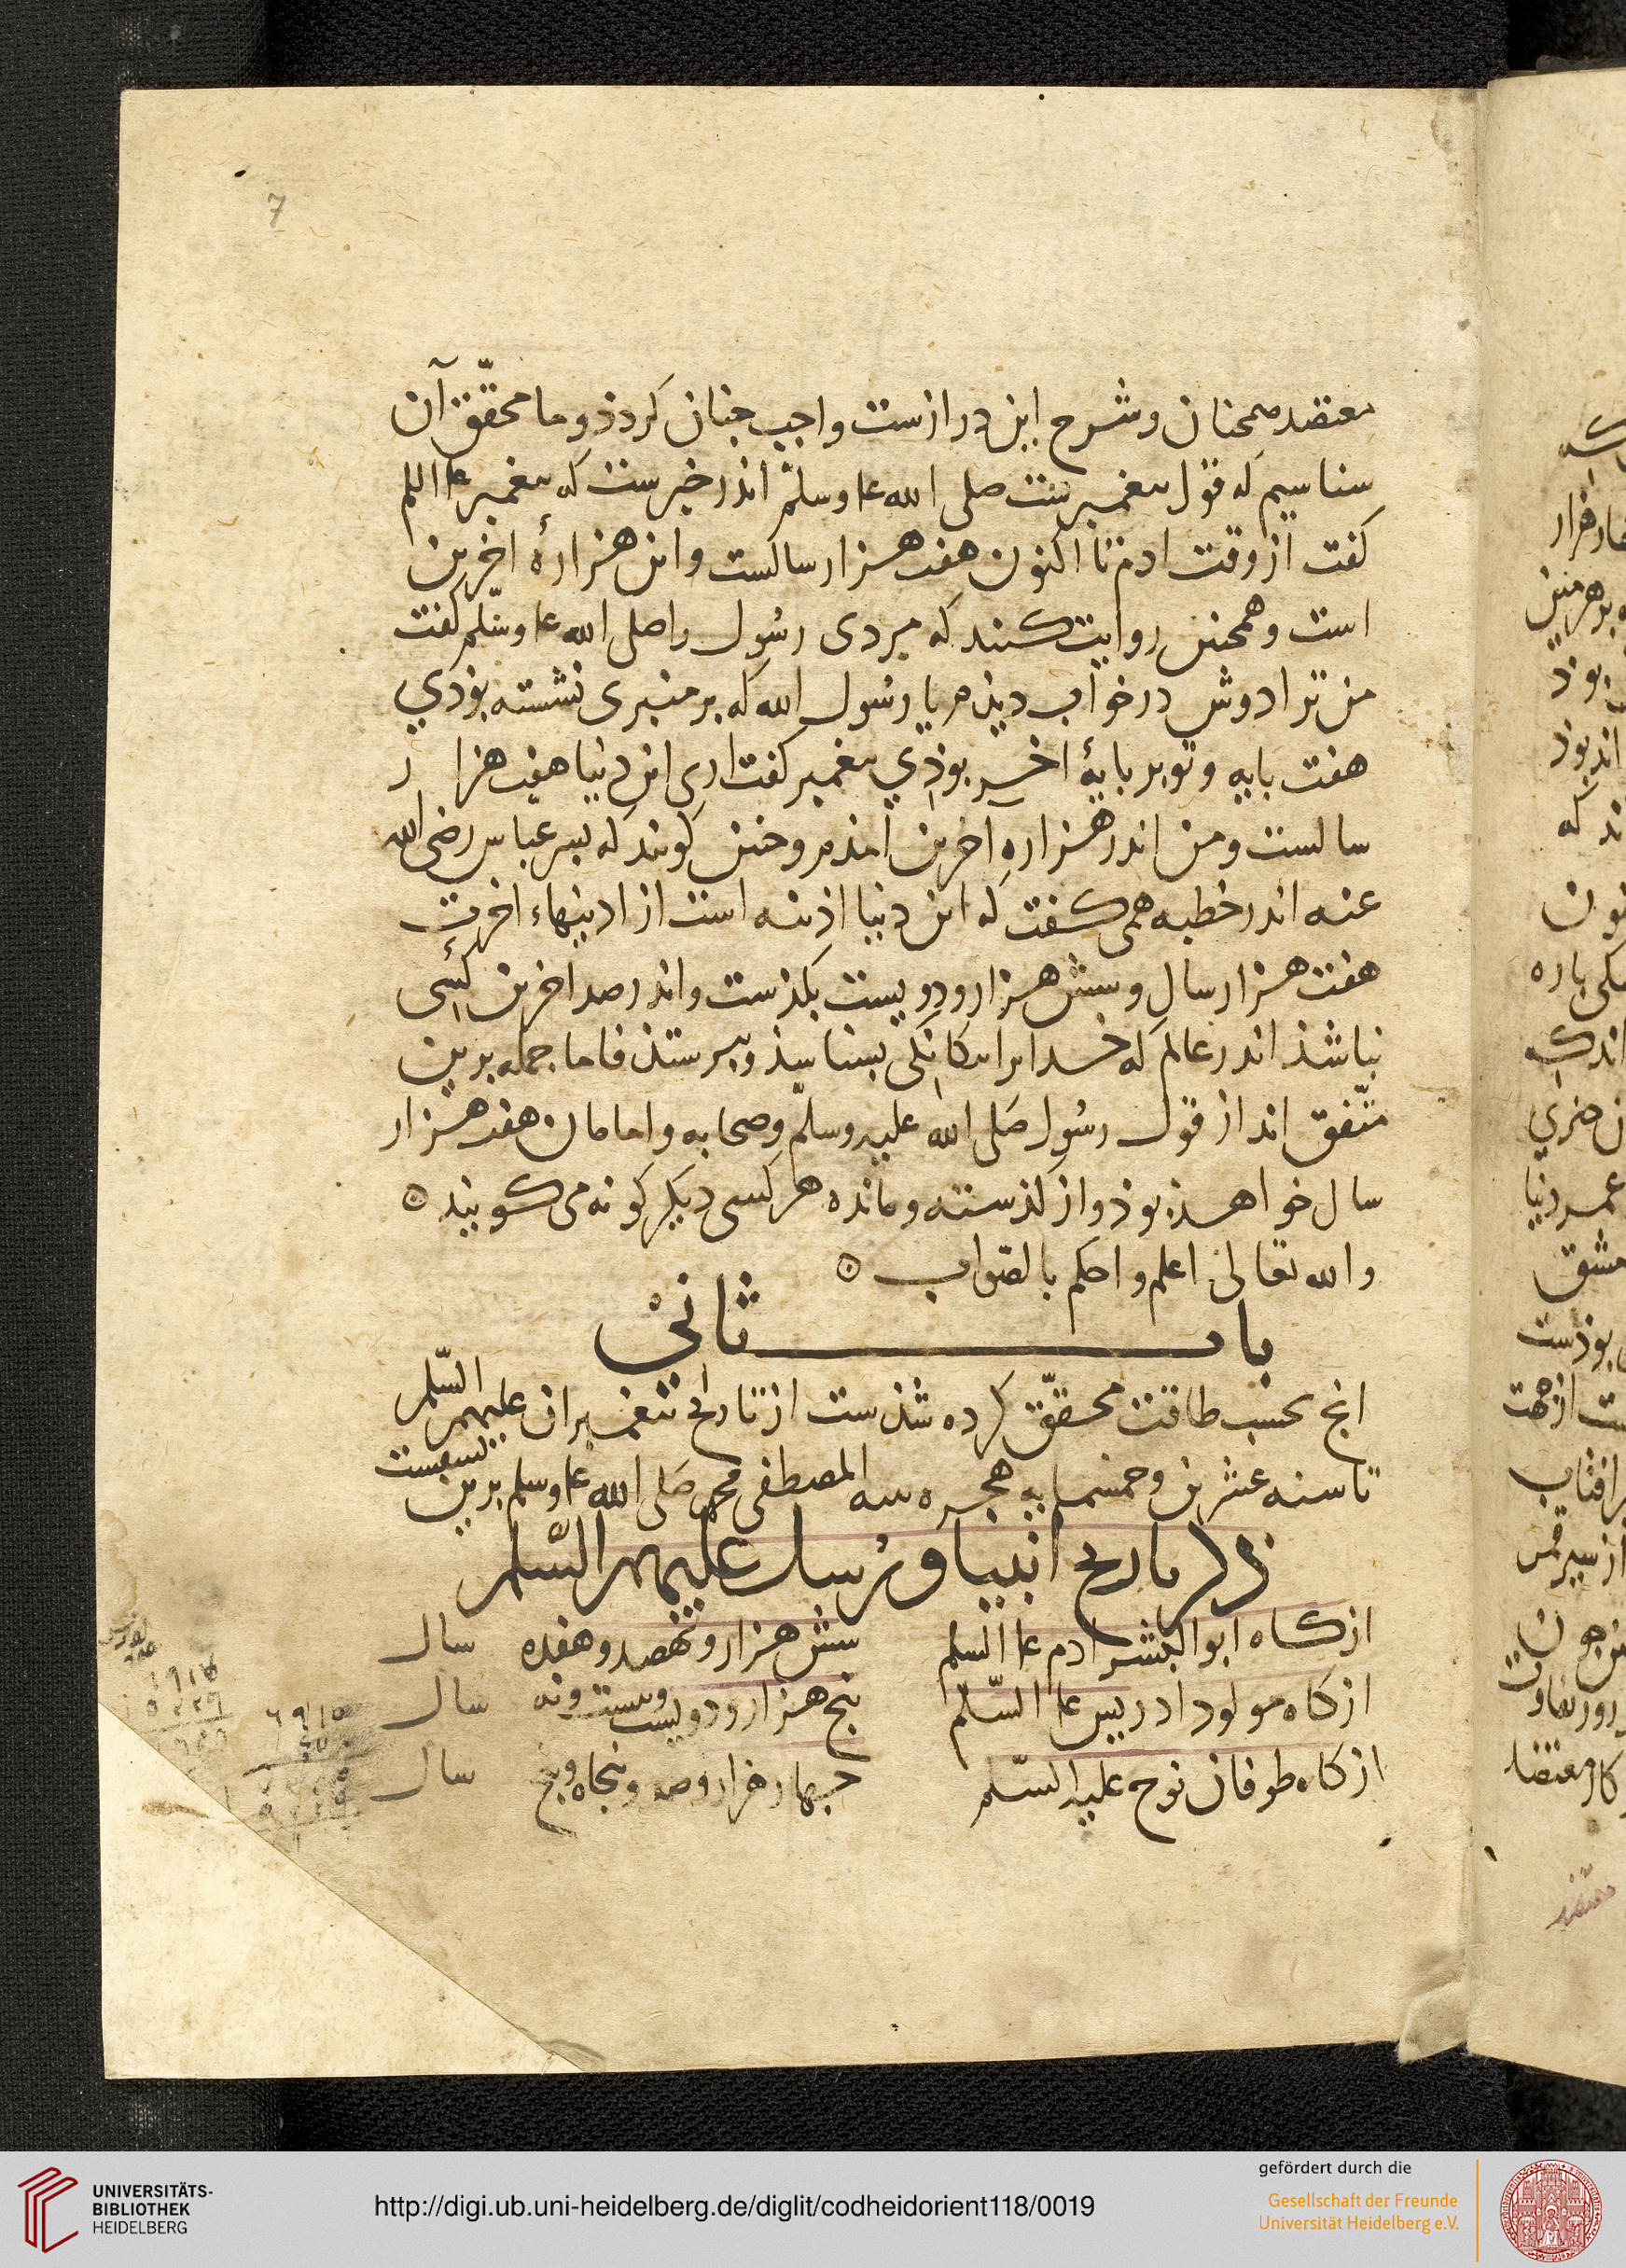 7
معتقد منجمان و شرح این درازست واجب جنان کردذ و ما محقّق آن
شناسیم که قول بیغمبرست صلی الله علیه وسلم اندر خبرست که بیغمبر علیه السلم
کفت از وقت ادم تا اکنون هفت هزار سالست و این هزارهٔ اخرین
است و همجنین روایت کنند که مردی رسُول را صلی الله علیه وسلّم کفت
من ترا دوش در خواب دیذم یا رسُول الله که بر منبری نشسته بوذي
هفت بایه و تو بر بایهٔ اخر بوذي بیغمبر کفت اری این دنیا هفت هزار
سالست و من اندر هزاره آخرین آمذم و جنین کویند که بسر عباس رضی الله
عنه اندر خطبه همی کفت که این دنیا اذینه است از ادینهاء اخرت
هفت هزار سال و شش هزار و دویست بکذست و اندر صد اخرین کسی
نباشذ اندر عالم که خدایرا بیکانکی بشناسذ و ببرستذ فاما جمله برین
متّفق اند از قول رسُول صَلی الله علیه وسلّم و صحابه و امامان هفت هزار
سال خواهذ بوذ و از کذشته و مانده هر کسی دیکر کونه می کویند ۝
و الله تعالی اعلم و احکم بالصّواب ۝
باب ثانی
انج بحسب طاقت محقّق کرده شذست از تاریخ بیغمبران علیهم السّلم
تا سنه عشرین و خمسمایه هجریه المصطفی محمد صَلی الله علیه وسلم برین نسبست
ذکر تاریخ انبیا و رُسل علیهم السّلم
از کاه ابو البشر ادم علیه السلم شش هزار و نهصد و هفده سال
از کاه مولود ادریس علیه السّلم بنج هزار و دویست و بیست و نه سال
از کاه طوفان نوح علیه السّلم جهار هزار و صد و بنجاه و بنج سال
UNIVERSITÄTS-
BIBLIOTHEK
HEIDELBERG
http://digi.ub.uni-heidelberg.de/diglit/codheidorient118/0019
gefördert durch die
Gesellschaft der Freunde
Universität Heidelberg e.V.